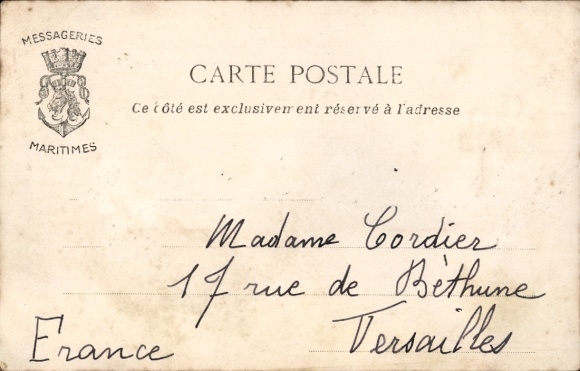 MESSAGERIES
MARITIMES
CARTE POSTALE
Ce côté est exclusivement réservé à l'adresse
Madame Cordier
17 rue de Béthune
Versailles
France